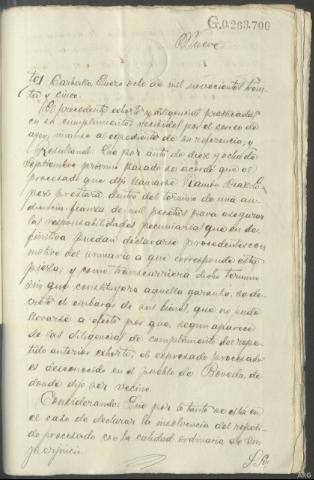 G.0.263.700
Nueve
tos Carballo, Enero ocho de mil novecientos trein-
ta y cinco.
El precedente exhorto y diligencias practicadas
en su cumplimiento, recibidas por el correo de
ayer, únanse al expediente de su referencia; y
Resultando: Que por auto de diez y ocho de
Septiembre próximo pasado se acordó que el
procesado que dijo llamarse Ramón
prestara dentro del término de una au-
diencia fianza de mil pesetas para asegurar
las responsabilidades pecuniarias que en de-
finitiva puedan declararse procedentes con
motivo del sumario a que corresponde esta
pieza; y como transcurriera dicho término
sin que constituyera aquella garantía, se de-
cretó el embargo de sus bienes, que no pudo
llevarse a efecto por que, según aparece
de las diligencias de cumplimiento del repe-
tido anterior exhorto, el expresado procesado
es desconocido en el pueblo de Boveda, de
donde dijo ser vecino.
Considerando: Que por lo tanto no está en
el caso de declarar la insolvencia del repeti-
do procesado con la calidad ordinaria de sin
perjuicio.